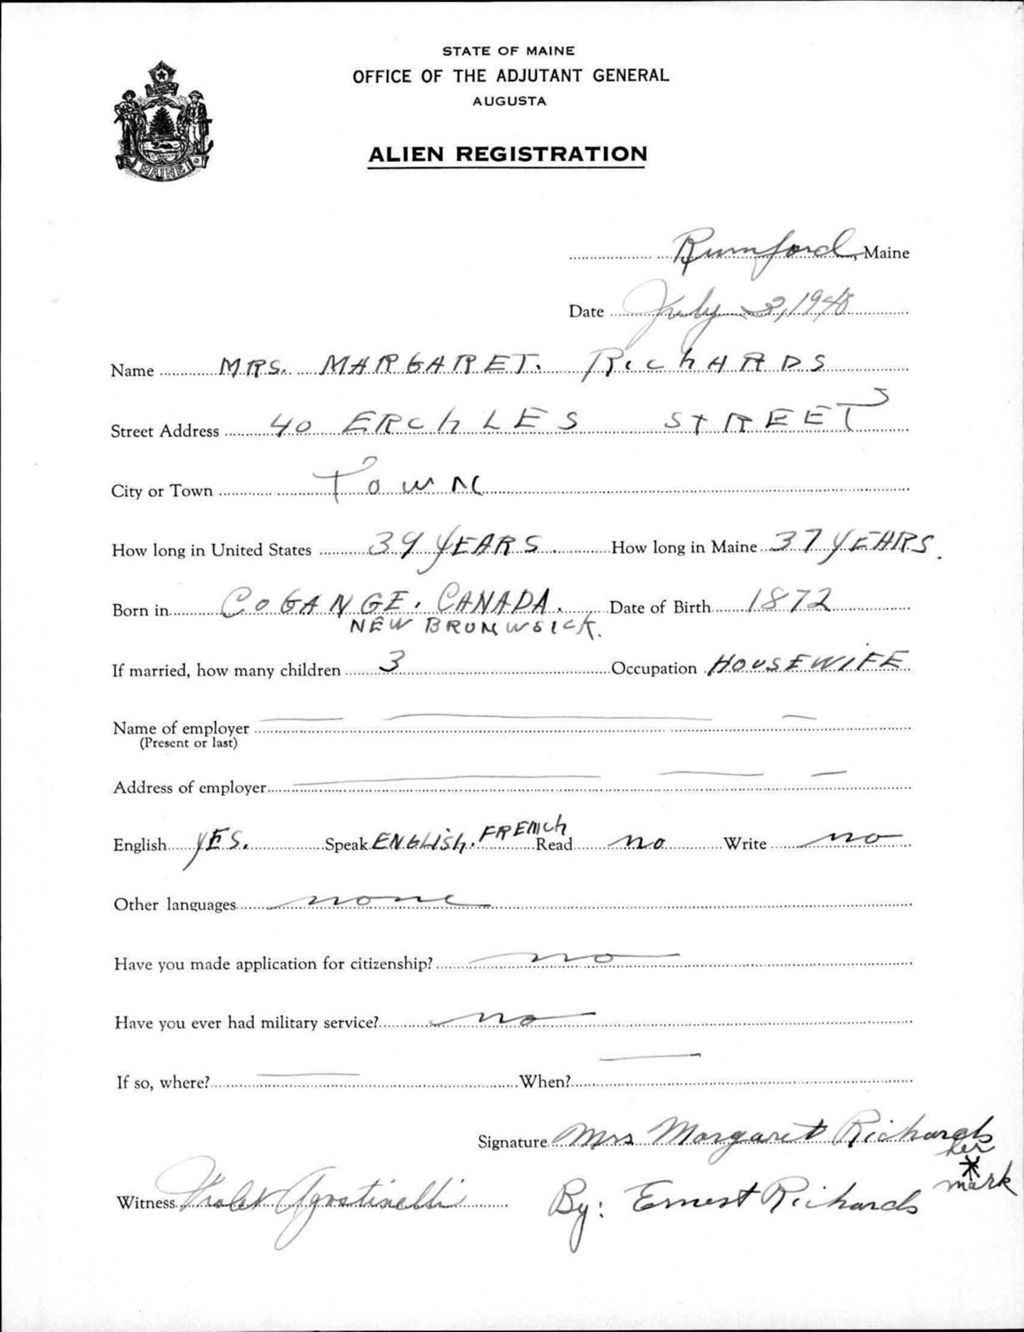 STATE OF MAINE
OFFICE OF THE ADJUTANT GENERAL
AUGUSTA
ALIEN REGISTRATION
MAINE
Rumford, Maine
Date July 2, 1940
Name MRS. MARGARET. RichARDS
Street Address 40 ERchLES STREET
City or Town Town
How long in United States 39 YEARS. How long in Maine 37 YEARS.
Born in COGANGE. CANADA. Date of Birth 1872
NEW BRUNWSICK.
If married, how many children 3 Occupation HOUSEWIFE
Name of employer
(Present or last)
Address of employer
English YES. Speak ENGLish. FRENch Read no Write no
Other languages none
Have you made application for citizenship? no
Have you ever had military service? no
If so, where? When?
Signature Mrs Margaret Richards
her
mark
Witness Violet Agostinelli By: Ernest Richards